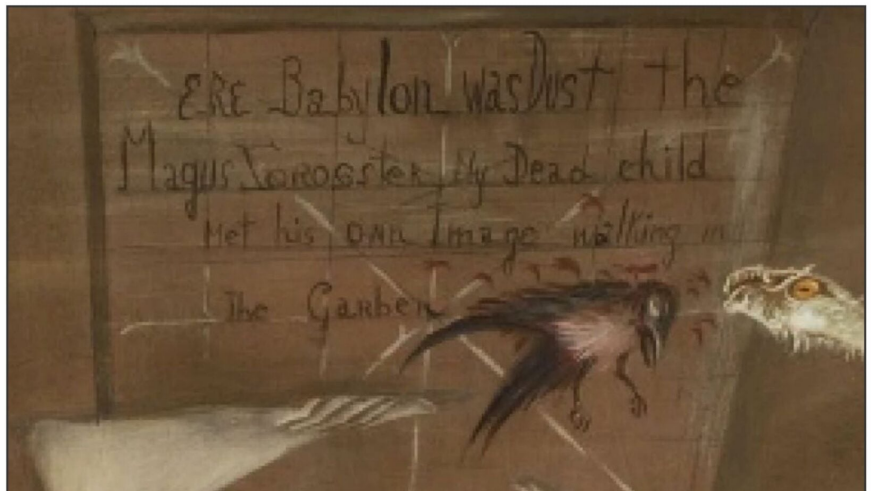 ERE Babylon was Dust the
Magus Zoroaster My Dead child
Met his own Image walking in
The Garden